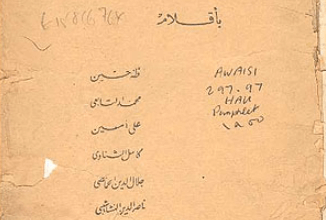 بأقلام
طه حسين
محمد التابعي
علي أمين
كامل الشناوي
جلال الدين الحمامصي
ناصر الدين النشاشيبي
AWAISI
297.97
HAU
Pamphlet